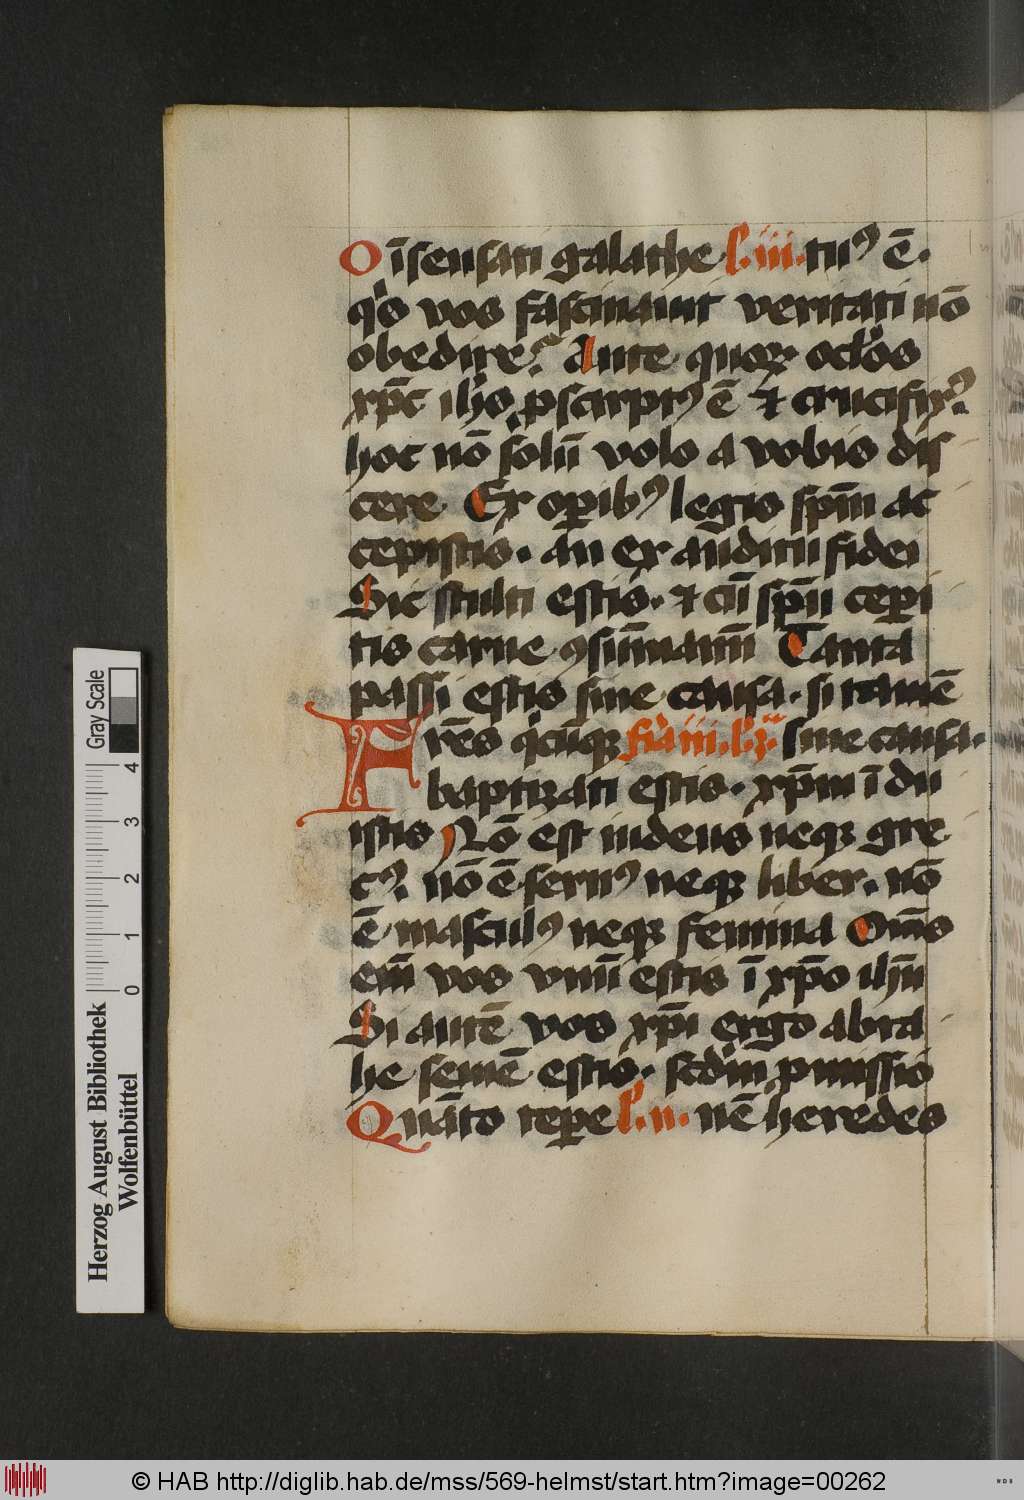 O īsensati galathe l̄·iii· tuꝰ ē·
qͥs vos fascinauit veritati nō
obedire? Ante quoꝝ oclͦos
xp̄c ihs̄ p̄scriptꝰ ē ⁊ crucifixꝰ?
hoc nō solū volo a vobis dis
cere Ex oꝑibꝰ legis spm̄ ac
cepistis· an ex auditu fidei
Sic stulti estis· ⁊ cū spū ceꝑi
tis carne ꝯsūmam̄ Tanta
passi estis sine causa· si tamē
Frēs qͥcūqꝫ fīa iii·l̄ꝫ· sine causa·
baptizati estis· xpm̄ īdu
istis Nō est iudeus neqꝫ gre
cꝰ· nō ē seruꝰ neqꝫ liber· nō
ē masculꝰ neqꝫ femina Om̄s
em̄ vos vnū estis ī xp̄o ihū
Si autē vos xp̄i ergo abra
he semē estis· scdm̄ ꝓmissio
Quāto teꝑe l̄·ii· nē heredes
Gray Scale
4
3
2
1
0
Herzog August Bibliothek
Wolfenbüttel
© HAB http://diglib.hab.de/mss/569-helmst/start.htm?image=00262